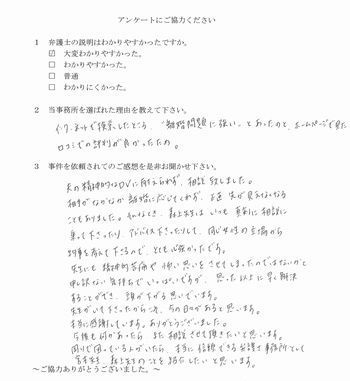 アンケートにご協力ください
1 弁護士の説明はわかりやすかったですか。
☑ 大変わかりやすかった。
□ わかりやすかった。
□ 普通
□ わかりにくかった。
2 当事務所を選ばれた理由を教えて下さい。
インターネットで検索したところ、"離婚問題に強い" とあったのと、ホームページで見た
口コミでの評判が良かったため。
3 事件を依頼されてのご感想を是非お聞かせ下さい。
夫の精神的なDVに耐えられず、相談致しました。
相手がなかなか離婚に応じてくれず、先が見えなくなる
こともありました。そんなとき、先生はいつも真剣に相談に
乗って下さったり、アドバイス下さったりして、同じ女性の立場から
物事を考えて下さるので、とても心強かったです。
先生にも精神的苦痛や怖い思いをさせてしまったのではないかと
申し訳ない気持ちでいっぱいですが、思った以上に早く解決
することができ、頭が下がる思いです。
先生がいて下さったからこそ、今の自分があると思います。
本当に感謝しています。ありがとうございました。
今後も何かあったら、また相談させて頂きたいと思います。
周りで困っている人がいたら、本当に信頼できる弁護士事務所として
先生のことを紹介したいと思います。
～ご協力ありがとうございました。～